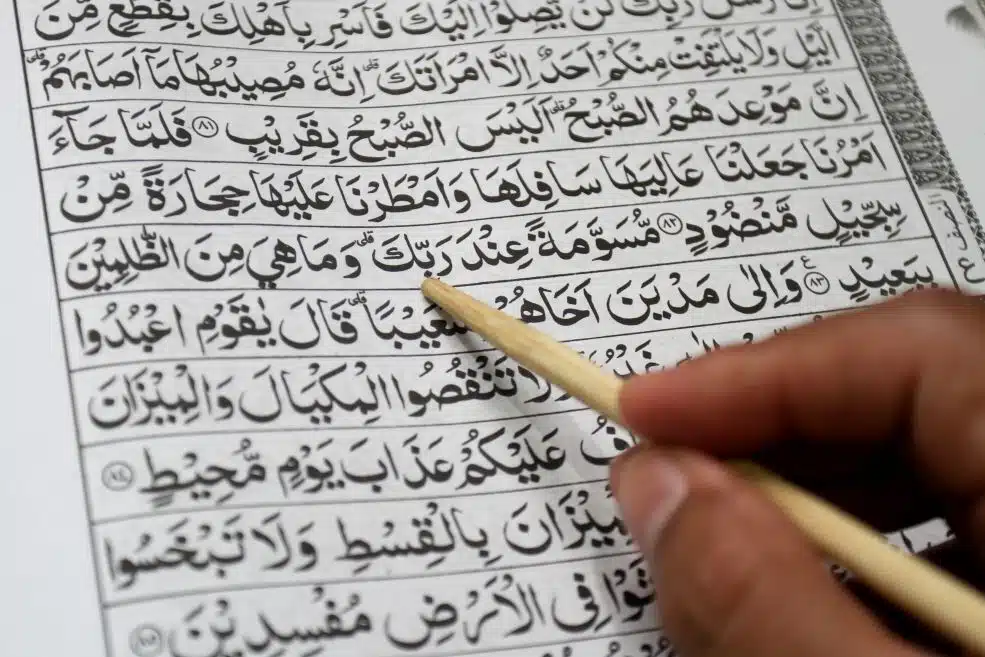 رُسُلُ رَبِّكَ لَنْ يَّصِلُوْۤا اِلَيْكَ فَاَسْرِ بِاَهْلِكَ بِقِطْعٍ مِّنَ
الَّيْلِ وَلَا يَلْتَفِتْ مِنْكُمْ اَحَدٌ اِلَّا امْرَاَتَكَ ؕ اِنَّهٗ مُصِيْبُهَا مَاۤ اَصَابَهُمْ ؕ
اِنَّ مَوْعِدَهُمُ الصُّبْحُ ؕ اَلَيْسَ الصُّبْحُ بِقَرِيْبٍ ﴿۸۱﴾ فَلَمَّا جَآءَ
اَمْرُنَا جَعَلْنَا عَالِيَهَا سَافِلَهَا وَاَمْطَرْنَا عَلَيْهَا حِجَارَةً مِّنْ
سِجِّيْلٍ مَّنْضُوْدٍ ﴿۸۲﴾ مُّسَوَّمَةً عِنْدَ رَبِّكَ ؕ وَمَا هِيَ مِنَ الظّٰلِمِيْنَ
بِبَعِيْدٍ ﴿۸۳﴾ وَاِلٰى مَدْيَنَ اَخَاهُمْ شُعَيْبًا ؕ قَالَ يٰقَوْمِ اعْبُدُوا
غَيْرُهٗ وَلَا تَنْقُصُوا الْمِكْيَالَ وَالْمِيْزَانَ
عَلَيْكُمْ عَذَابَ يَوْمٍ مُّحِيْطٍ ﴿۸۴﴾
بِالْقِسْطِ وَلَا تَبْخَسُوا
فِى الْاَرْضِ مُفْسِدِيْنَ ﴿۸۵﴾
النصف